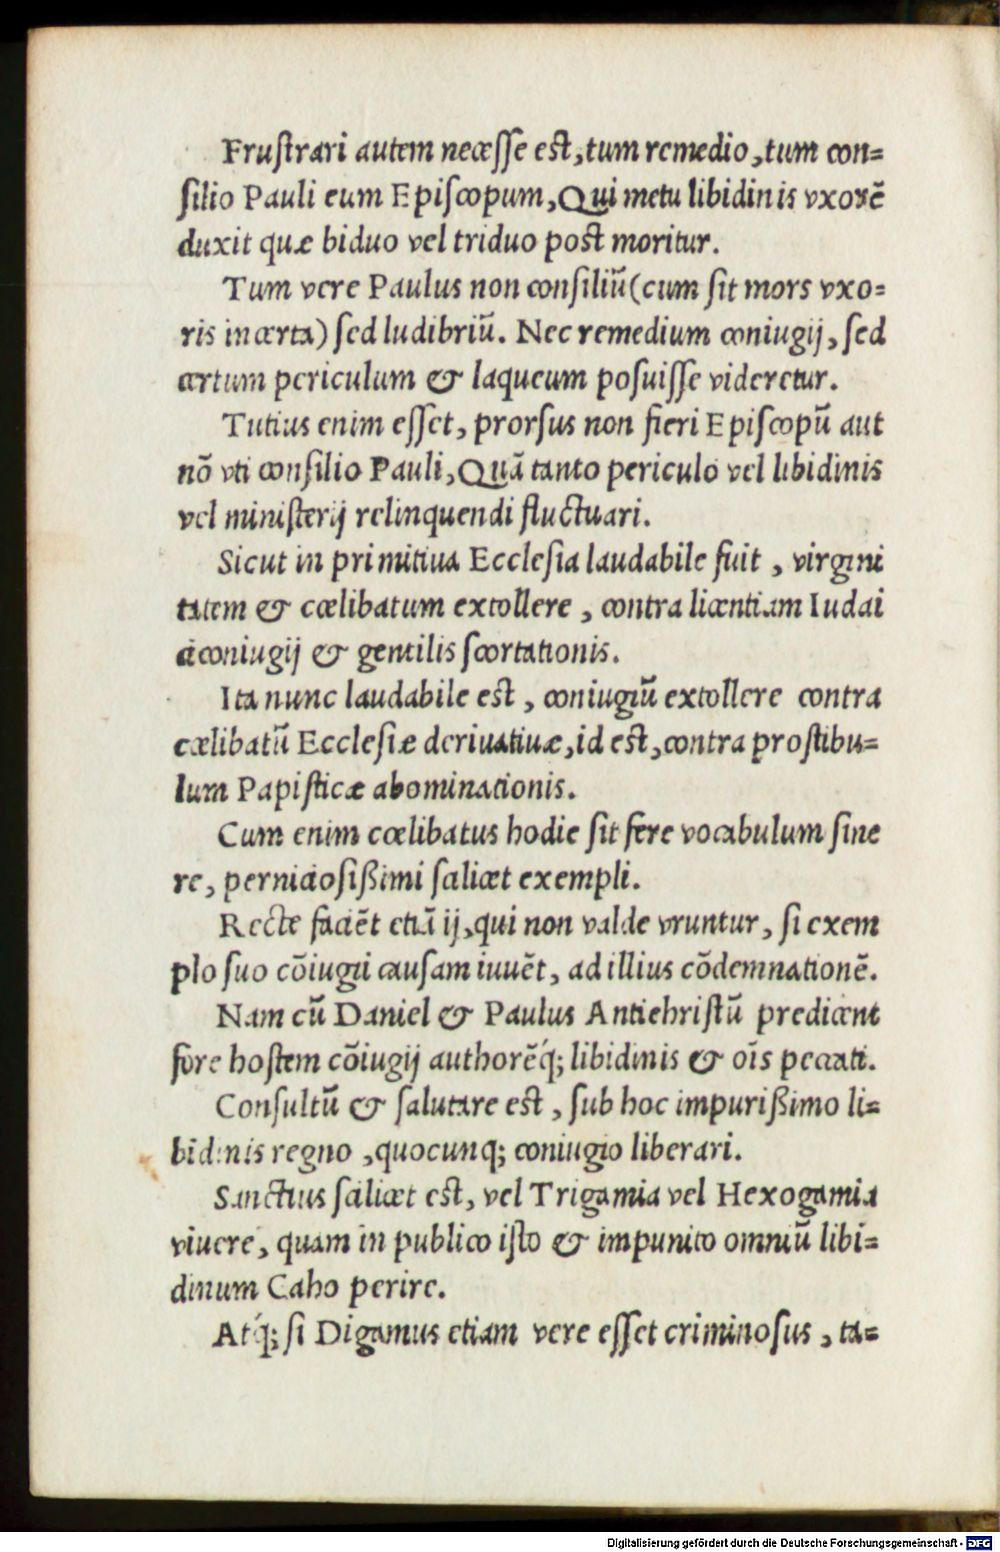 Fruſtrari autem neceſſe eſt, tum remedio, tum con=
ſilio Pauli eum Epiſcopum, Qui metu libidinis vxorē
duxit quæ biduo vel triduo poſt moritur.
Tum vere Paulus non conſiliū (cum ſit mors vxo=
ris incerta) ſed ludibriū. Nec remedium coniugij, ſed
certum periculum & laqueum poſuiſſe videretur.
Tutius enim eſſet, prorſus non fieri Epiſcopū aut
nō vti conſilio Pauli, Quā tanto periculo vel libidinis
vel miniſterij relinquendi fluctuari.
Sicut in primitiua Eccleſia laudabile fuit, virgini
tatem & cœlibatum extollere, contra licentiam Iudai
ci coniugij & gentilis ſcortationis.
Ita nunc laudabile eſt, coniugiū extollere contra
cœlibatū Eccleſiæ deriuatiuæ, id eſt, contra proſtibu=
lum Papiſticæ abominationis.
Cum enim cœlibatus hodie ſit fere vocabulum ſine
re, pernicioſißimi ſcilicet exempli.
Recte faciēt etiā ij, qui non valde vruntur, ſi exem
plo ſuo cōiugii cauſam iuuēt, ad illius cōdemnationē.
Nam cū Daniel & Paulus Antiehriſtū predicent
fore hoſtem cōiugij authorēq́; libidinis & oīs peccati.
Conſultū & ſalutare eſt, ſub hoc impurißimo li=
bidinis regno, quocunq; coniugio liberari.
Sanctius ſcilicet eſt, vel Trigamia vel Hexogamia
viuere, quam in publico iſto & impunito omniū libi=
dinum Caho perire.
Atq́; ſi Digamus etiam vere eſſet criminoſus, ta=
Digitalisierung gefördert durch die Deutsche Forschungsgemeinschaft - DFG